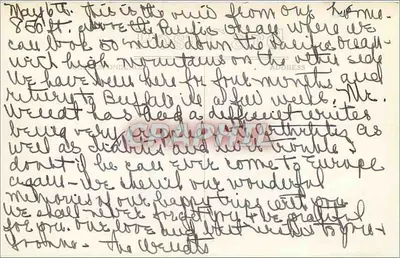 May 6th. This is the view from our home
850 ft. above the Pacific Ocean where we
can look 50 miles down the Pacific Ocean
with high mountains on the other side
We have been here for four months and
return to Buffalo in a few weeks. Mr.
has had a difficult winter
being very with arthritis as
well as trouble I
doubt if he can ever come to Europe
again - We cherish our wonderful
memories of our happy trips with you
We shall never forget you & be grateful
for you. Our love and best wishes to you &
The